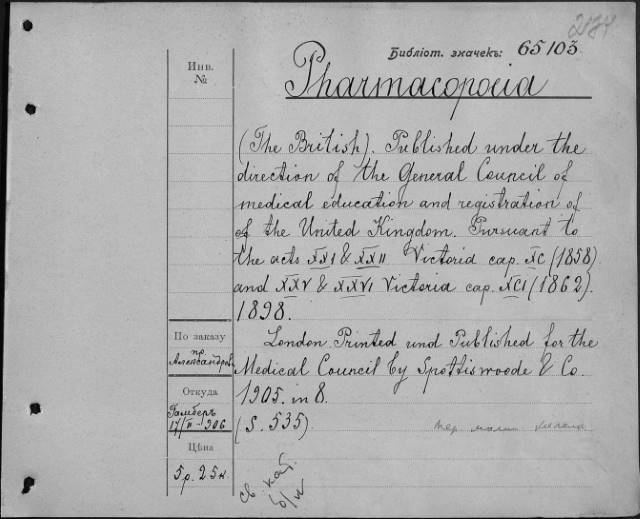 Библіот. значекъ: 65103
Инв.
№
Pharmacopoeia
(The British). Published under the
direction of the General Council of
medical education and registration of
of the United Kingdom. Pursuant to
the acts XXI & XXII Victoria cap. XC (1858)
and XXV & XXVI Victoria cap. XCI (1862).
1898.
London Printed und Published for the
Medical Council by Spottiswoode & Co.
1905. in 8.
(S. 535)
По заказу
пр.
Откуда
Гамберъ
17/II - 906
Цѣна
5 р. 25 к
св. кат.